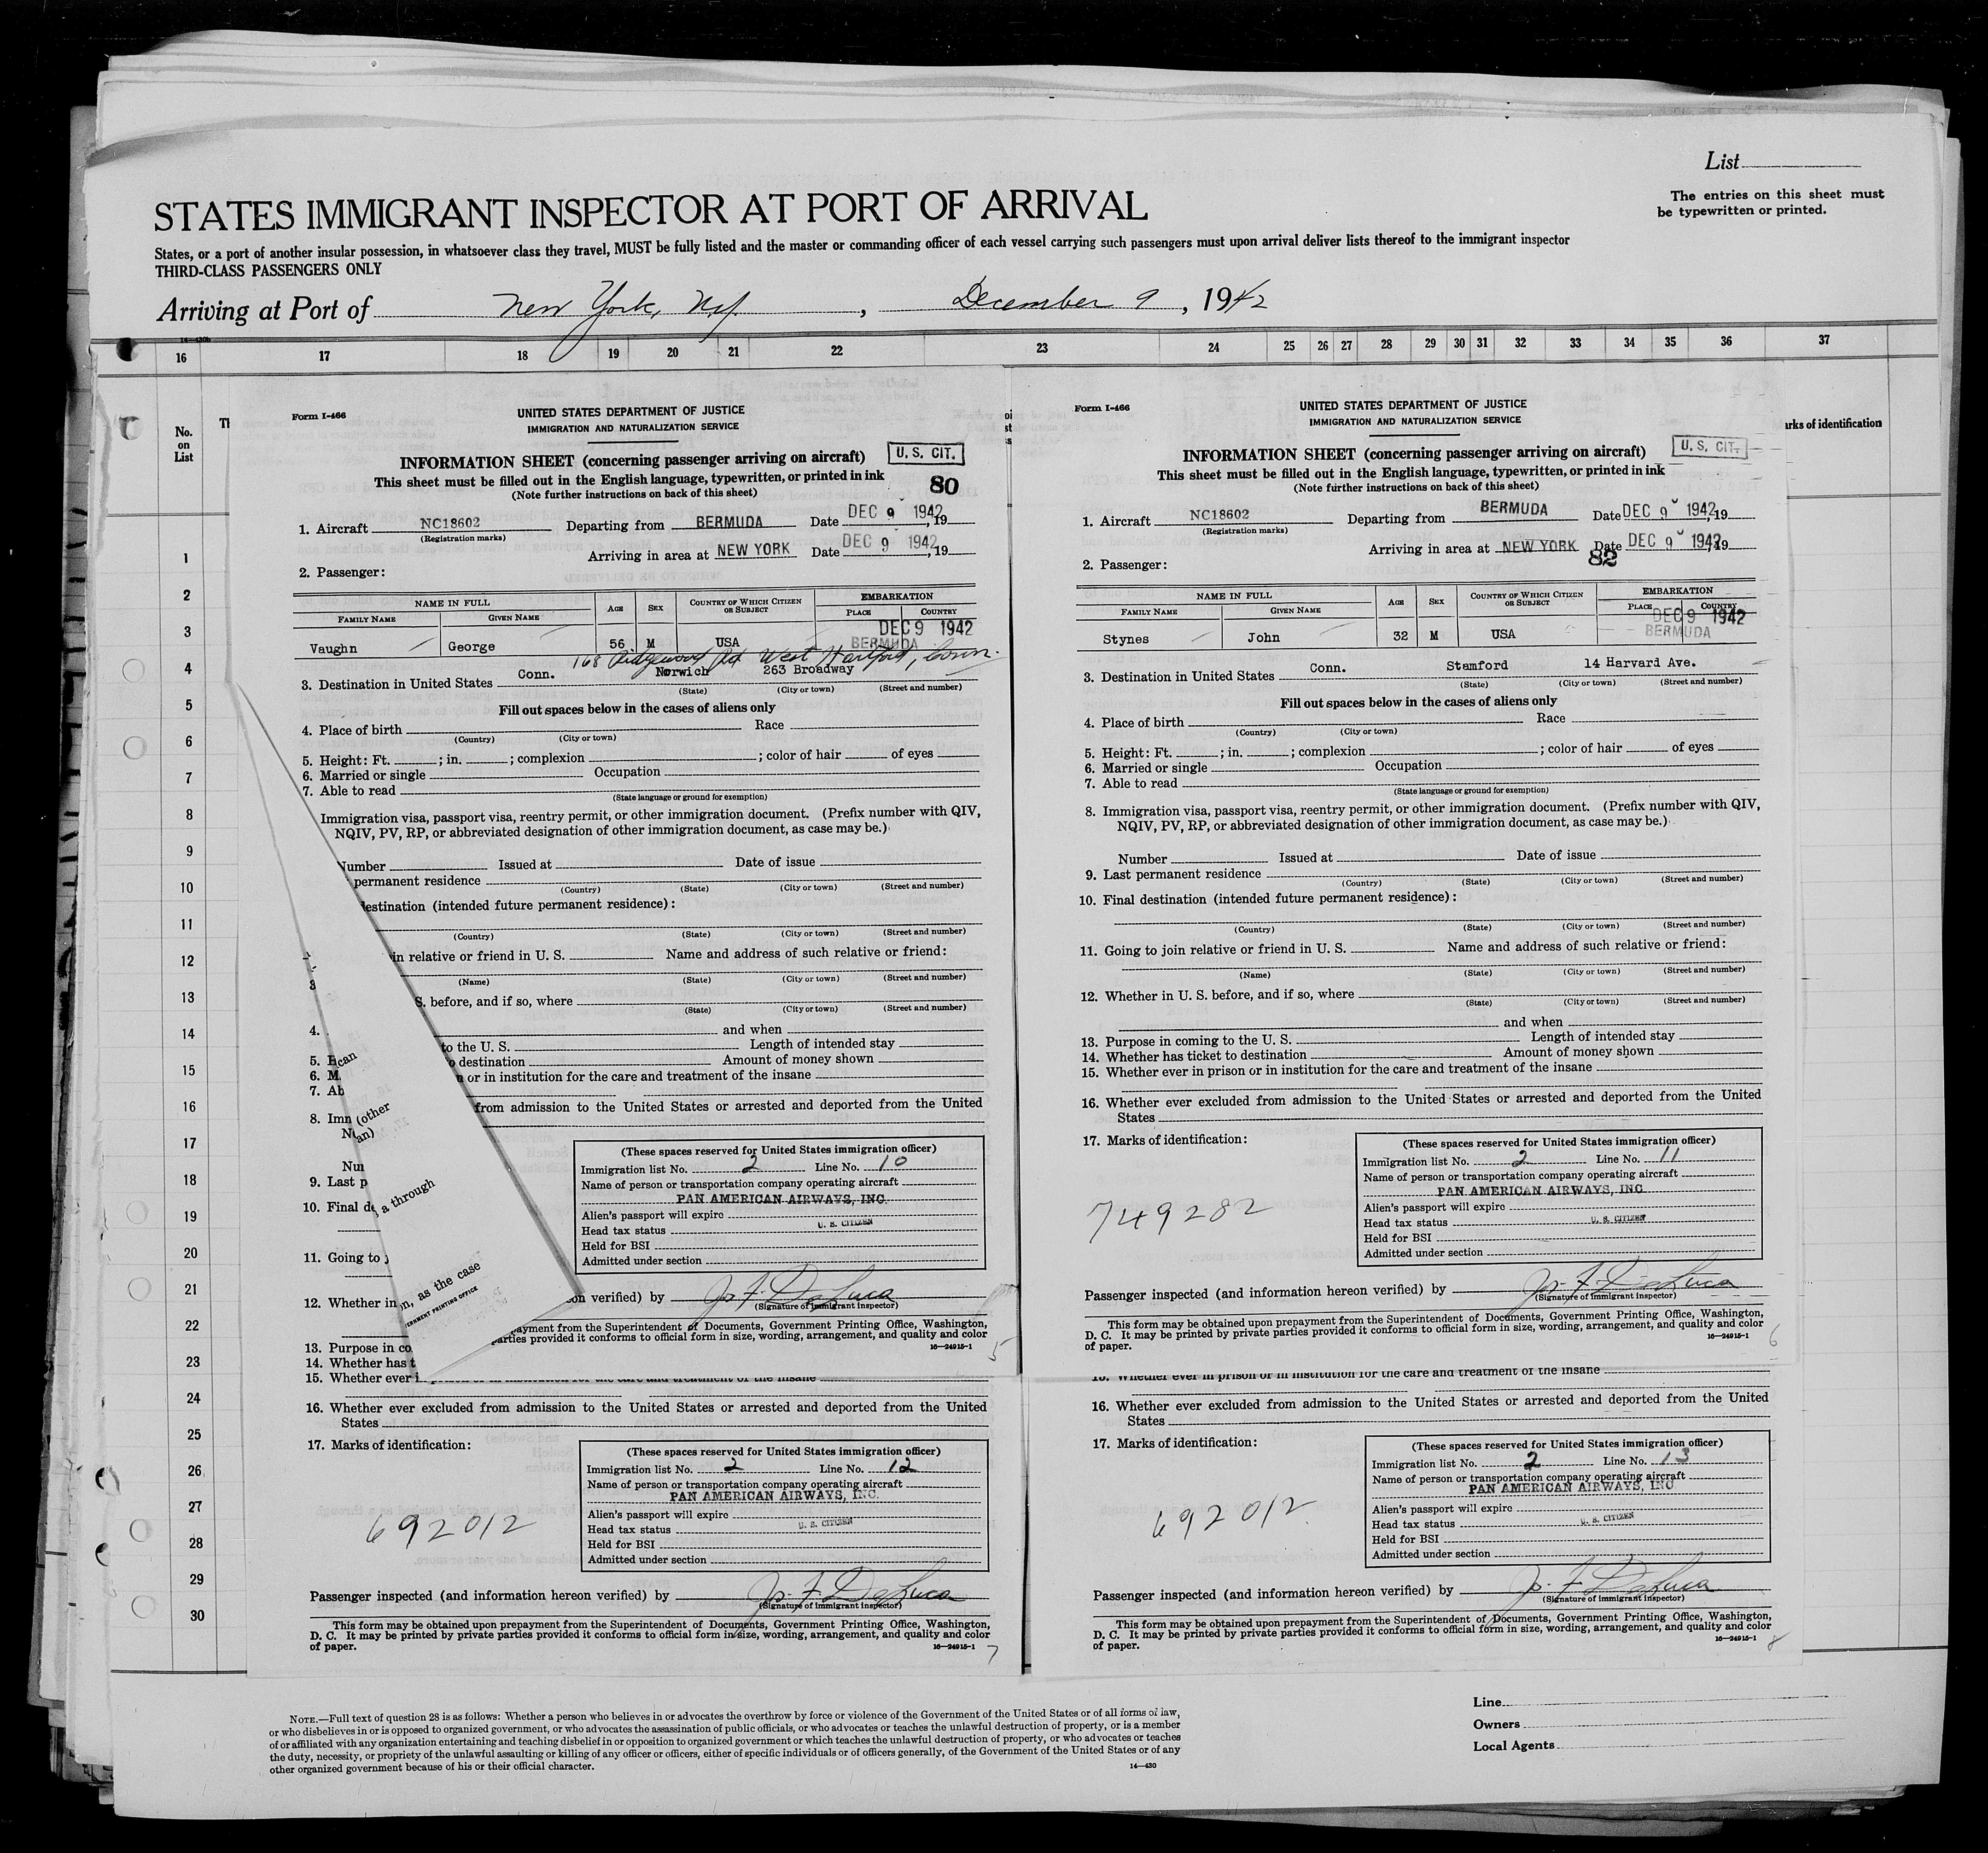 List
The entries on this sheet must
be typewritten or printed.
STATES IMMIGRANT INSPECTOR AT PORT OF ARRIVAL
States, or a port of another insular possession, in whatsoever class they travel, MUST be fully listed and the master or commanding officer of each vessel carrying such passengers must upon arrival deliver lists thereof to the immigrant inspector
THIRD-CLASS PASSENGERS ONLY
Arriving at Port of New York, N.Y., December 9, 1942
14-430b
16 17 18 19 20 21 22 23 24 25 26 27 28 29 30 31 32 33 34 35 36 37
No.
on
List
arks of identification
1
2
3
4
5
6
7
8
9
10
11
12
13
14
15
16
17
18
19
20
21
22
23
24
25
26
27
28
29
30
Form I-466
UNITED STATES DEPARTMENT OF JUSTICE
IMMIGRATION AND NATURALIZATION SERVICE
U. S. CIT.
INFORMATION SHEET (concerning passenger arriving on aircraft)
This sheet must be filled out in the English language, typewritten, or printed in ink
80
(Note further instructions on back of this sheet)
1. Aircraft NC18602 Departing from BERMUDA Date DEC 9 1942, 19
(Registration marks)
Arriving in area at NEW YORK Date DEC 9 1942, 19
2. Passenger:
NAME IN FULL AGE SEX COUNTRY OF WHICH CITIZEN OR SUBJECT EMBARKATION
FAMILY NAME GIVEN NAME PLACE COUNTRY
DEC 9 1942
Vaughn George 56 M USA BERMUDA
168 Ridgewood Rd West Hartford, Conn.
3. Destination in United States Conn. Norwich 263 Broadway
(State) (City or town) (Street and number)
Fill out spaces below in the cases of aliens only
4. Place of birth Race
(Country) (City or town)
5. Height: Ft. ; in. ; complexion ; color of hair of eyes
6. Married or single Occupation
7. Able to read
(State language or ground for exemption)
Immigration visa, passport visa, reentry permit, or other immigration document. (Prefix number with QIV,
NQIV, PV, RP, or abbreviated designation of other immigration document, as case may be.)
Number Issued at Date of issue
permanent residence
(Country) (State) (City or town) (Street and number)
destination (intended future permanent residence):
(Country) (State) (City or town) (Street and number)
in relative or friend in U. S. Name and address of such relative or friend:
(Name) (State) (City or town) (Street and number)
S. before, and if so, where
(State) (City or town) (Street and number)
and when
to the U. S. Length of intended stay
o destination Amount of money shown
n or in institution for the care and treatment of the insane
from admission to the United States or arrested and deported from the United
(These spaces reserved for United States immigration officer)
Immigration list No. 2 Line No. 10
Name of person or transportation company operating aircraft
PAN AMERICAN AIRWAYS, INC.
Alien's passport will expire
Head tax status U. S. CITIZEN
Held for BSI
Admitted under section
on verified) by Js. F. DeLuca
(Signature of immigrant inspector)
payment from the Superintendent of Documents, Government Printing Office, Washington,
parties provided it conforms to official form in size, wording, arrangement, and quality and color
16-24915-1
5
4.
5. H
6. M
7. Ab
8. Imn
N
Nur
9. Last p
10. Final de
11. Going to j
12. Whether in
13. Purpose in co
14. Whether has t
15. Whether ever i
can
(other
an)
a through
n, as the case
ERNMENT PRINTING OFFICE
Form I-466
UNITED STATES DEPARTMENT OF JUSTICE
IMMIGRATION AND NATURALIZATION SERVICE
U. S. CIT.
INFORMATION SHEET (concerning passenger arriving on aircraft)
This sheet must be filled out in the English language, typewritten, or printed in ink
(Note further instructions on back of this sheet)
1. Aircraft NC18602 Departing from BERMUDA Date DEC 9 1942, 19
(Registration marks)
Arriving in area at NEW YORK Date DEC 9 1942, 19
82
2. Passenger:
NAME IN FULL AGE SEX COUNTRY OF WHICH CITIZEN OR SUBJECT EMBARKATION
FAMILY NAME GIVEN NAME PLACE COUNTRY
DEC 9 1942
Stynes John 32 M USA BERMUDA
3. Destination in United States Conn. Stamford 14 Harvard Ave.
(State) (City or town) (Street and number)
Fill out spaces below in the cases of aliens only
4. Place of birth Race
(Country) (City or town)
5. Height: Ft. ; in. ; complexion ; color of hair of eyes
6. Married or single Occupation
7. Able to read
(State language or ground for exemption)
8. Immigration visa, passport visa, reentry permit, or other immigration document. (Prefix number with QIV,
NQIV, PV, RP, or abbreviated designation of other immigration document, as case may be.)
Number Issued at Date of issue
9. Last permanent residence
(Country) (State) (City or town) (Street and number)
10. Final destination (intended future permanent residence):
(Country) (State) (City or town) (Street and number)
11. Going to join relative or friend in U. S. Name and address of such relative or friend:
(Name) (State) (City or town) (Street and number)
12. Whether in U. S. before, and if so, where
(State) (City or town) (Street and number)
and when
13. Purpose in coming to the U. S. Length of intended stay
14. Whether has ticket to destination Amount of money shown
15. Whether ever in prison or in institution for the care and treatment of the insane
16. Whether ever excluded from admission to the United States or arrested and deported from the United
States
17. Marks of identification:
749282
(These spaces reserved for United States immigration officer)
Immigration list No. 2 Line No. 11
Name of person or transportation company operating aircraft
PAN AMERICAN AIRWAYS, INC
Alien's passport will expire
Head tax status U. S. CITIZEN
Held for BSI
Admitted under section
Passenger inspected (and information hereon verified) by Js. F. DeLuca
(Signature of immigrant inspector)
This form may be obtained upon prepayment from the Superintendent of Documents, Government Printing Office, Washington,
D. C. It may be printed by private parties provided it conforms to official form in size, wording, arrangement, and quality and color
of paper.
16-24915-1
6
16. Whether ever excluded from admission to the United States or arrested and deported from the United
States
17. Marks of identification:
692012
(These spaces reserved for United States immigration officer)
Immigration list No. 2 Line No. 12
Name of person or transportation company operating aircraft
PAN AMERICAN AIRWAYS, INC.
Alien's passport will expire
Head tax status U. S. CITIZEN
Held for BSI
Admitted under section
Passenger inspected (and information hereon verified) by Js. F. DeLuca
(Signature of immigrant inspector)
This form may be obtained upon prepayment from the Superintendent of Documents, Government Printing Office, Washington,
D. C. It may be printed by private parties provided it conforms to official form in size, wording, arrangement, and quality and color
of paper.
16-24915-1
7
15. Whether ever in prison or in institution for the care and treatment of the insane
16. Whether ever excluded from admission to the United States or arrested and deported from the United
States
17. Marks of identification:
692012
(These spaces reserved for United States immigration officer)
Immigration list No. 2 Line No. 13
Name of person or transportation company operating aircraft
PAN AMERICAN AIRWAYS, INC
Alien's passport will expire
Head tax status U. S. CITIZEN
Held for BSI
Admitted under section
Passenger inspected (and information hereon verified) by Js. F. DeLuca
(Signature of immigrant inspector)
This form may be obtained upon prepayment from the Superintendent of Documents, Government Printing Office, Washington,
D. C. It may be printed by private parties provided it conforms to official form in size, wording, arrangement, and quality and color
of paper.
16-24915-1
8
NOTE.—Full text of question 28 is as follows: Whether a person who believes in or advocates the overthrow by force or violence of the Government of the United States or of all forms of law,
or who disbelieves in or is opposed to organized government, or who advocates the assassination of public officials, or who advocates or teaches the unlawful destruction of property, or is a member
of or affiliated with any organization entertaining and teaching disbelief in or opposition to organized government or which teaches the unlawful destruction of property, or who advocates or teaches
the duty, necessity, or propriety of the unlawful assaulting or killing of any officer or officers, either of specific individuals or of officers generally, of the Government of the United States or of any
other organized government because of his or their official character.
14-430
Line
Owners
Local Agents